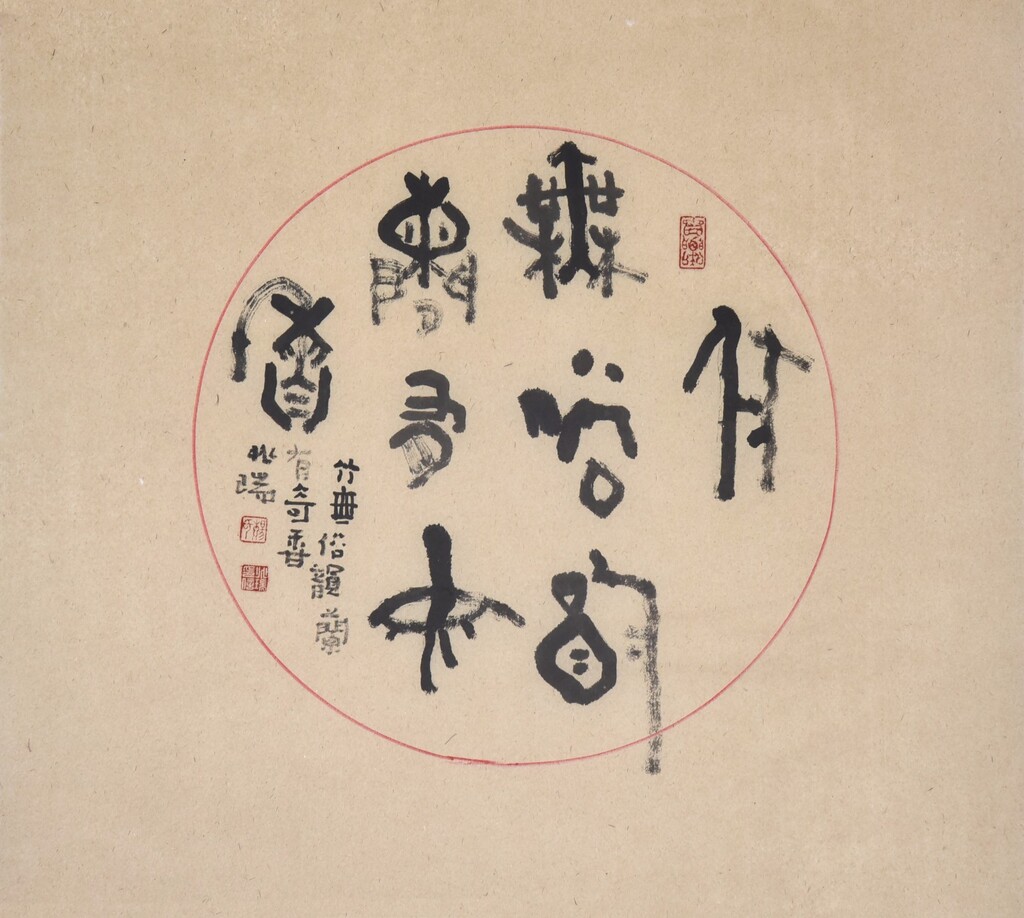 竹
無俗韵
蘭有奇
香
竹無俗韻蘭
有奇香
瑞